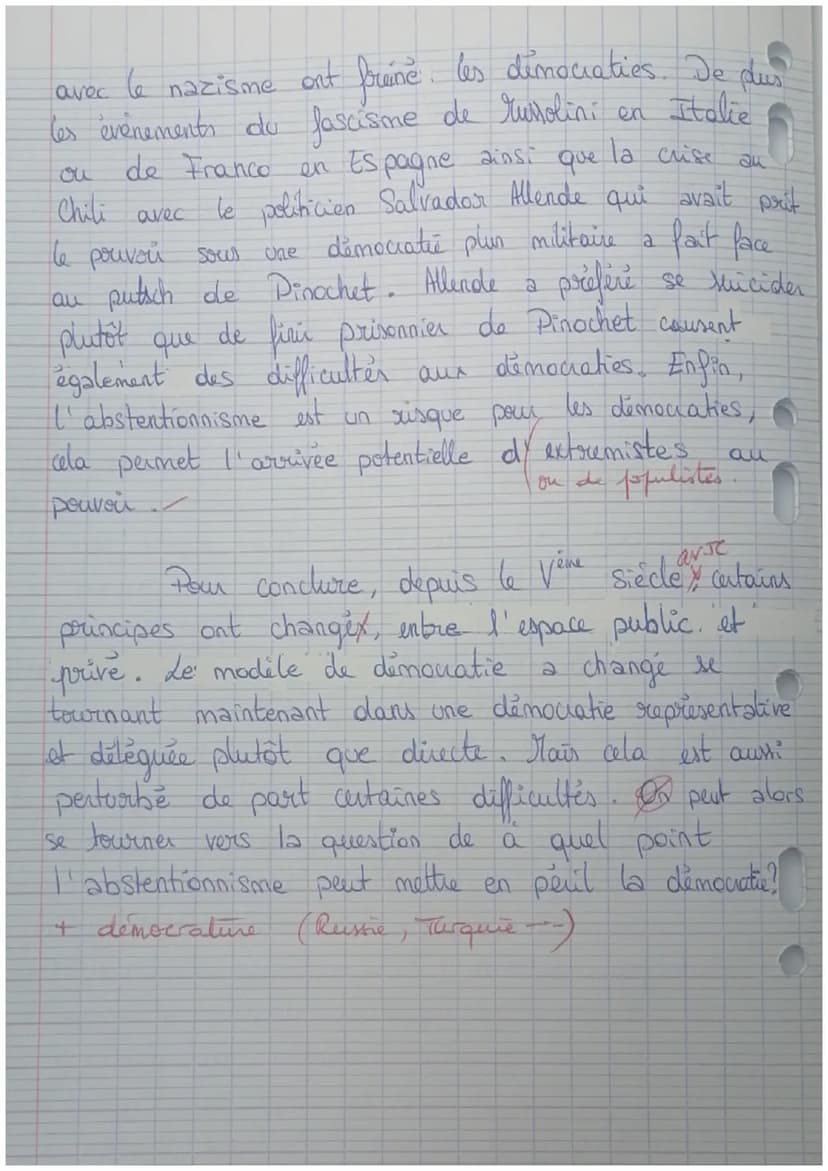 avec le nazisme ont freiné. les démocraties. De plus
les évènements du fascisme de Mussolini en Italie
ou de Franco en Espagne ainsi que la crise au
Chili avec le politicien Salvador Allende qui avait prit
le pouvoir sous une démocratie plus militaire a fait face
au putsch de Pinochet. Allende a préféré se suicider
plutôt que de finir prisonnier de Pinochet causent
également des difficultés aux démocraties. Enfin,
l'abstentionnisme est un risque pour les démocraties,
cela permet l'arrivée potentielle d'extremistes au
ou de populistes.
pouvoir.
av JC
Pour conclure, depuis le Vème siècle, certains
principes ont changés, entre l'espace public. et
privé. Le modèle de démocratie a changé se
tournant maintenant dans une démocratie représentative
et déléguée plutôt que directe. Mais cela est aussi
perturbé de part certaines difficultés. On peut alors
se tourner vers la question de à quel point
l'abstentionnisme peut mettre en péril la démocratie?
+ démocrature (Russie, Turquie ---)